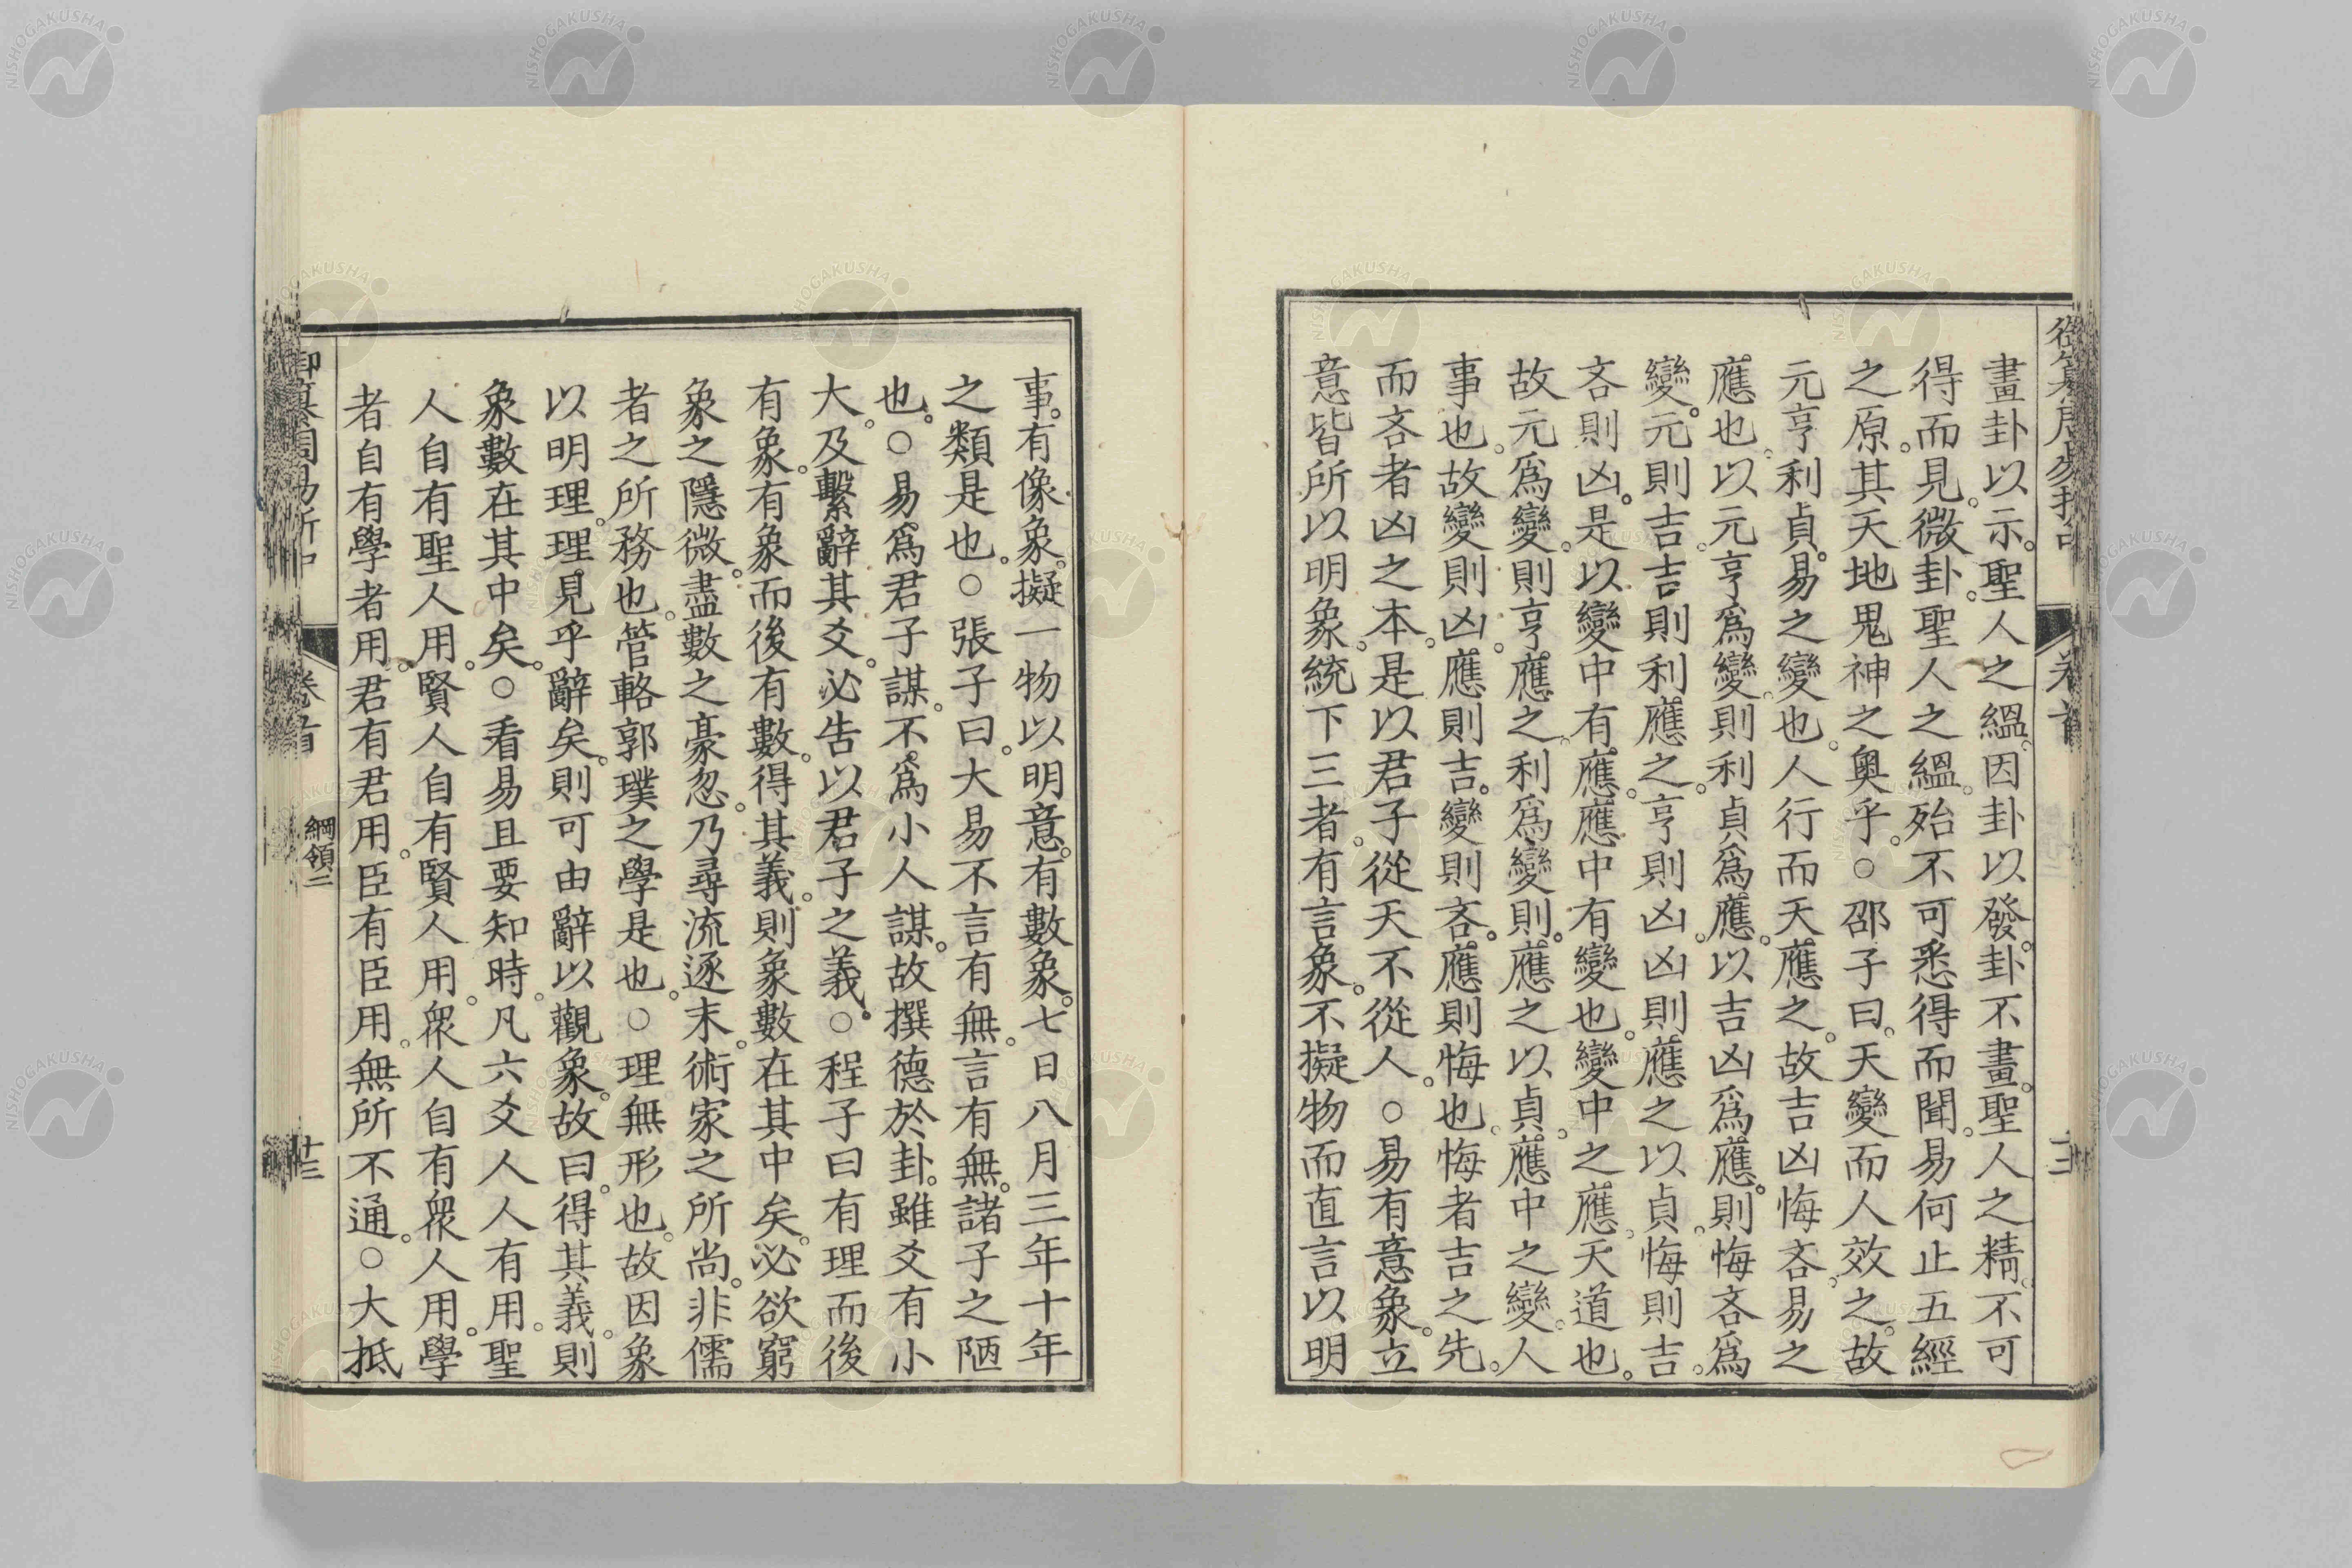 畫卦以示。聖人之縕。因卦以發。卦不畫。聖人之精。不可
得而見。微卦。聖人之縕。殆不可悉得而聞。易何止五經
之原。其天地鬼神之奥乎。○邵子曰。天變而人效之。故
元亨利貞。易之變也。人行而天應之。故吉凶悔吝。易之
應也。以元亨爲變。則利貞爲應。以吉凶爲應。則悔吝爲
變。元則吉。吉則利應之。亨則凶。凶則應之以貞。悔則吉。
吝則凶。是以變中有應。應中有變也。變中之應。天道也。
故元爲變。則亨應之。利爲變。則應之以貞。應中之變。人
事也。故變則凶。應則吉。變則吝。應則悔也。悔者吉之先。
而吝者凶之本。是以君子從天不從人。○易有意象。立
意皆所以明象。統下三者。有言象。不擬物而直言以明
事。有像象。擬一物以明意。有數象。七日八月三年十年
之類是也。○張子曰。大易不言有無。言有無。諸子之陋
也。○易爲君子謀。不爲小人謀。故撰德於卦。雖爻有小
大。及繫辭其爻。必告以君子之義。○程子曰有理而後
有象。有象而後有數。得其義。則象數在其中矣。必欲窮
象之隱微。盡數之豪忽。乃尋流逐末。術家之所尚。非儒
者之所務也。管輅郭璞之學是也。○理無形也。故因象
以明理。理見乎辭矣。則可由辭以觀象。故曰。得其義。則
象數在其中矣。○看易且要知時。凡六爻人人有用。聖
人自有聖人用。賢人自有賢人用。衆人自有衆人用。學
者自有學者用。君有君用。臣有臣用。無所不通。○大抵
卷首
綱領二
十三
NISHOGAKUSHA